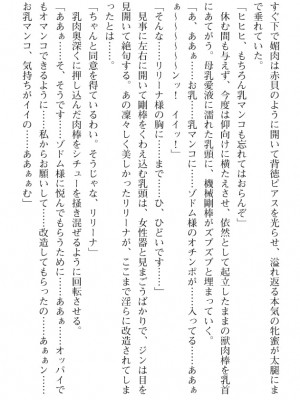 すぐ下で媚肉は赤貝のように背徳ピアスを光らせ、溢れ返る本気の牝蜜が太腿にま
で垂れていた。
「ヒヒヒ、もちろん乳マンコも忘れてはおらんぞ」
休む間も与えず、今度は仰向けに横たえさせ、依然として起立したままの獣肉棒を乳首
にあてがう。母乳愛液に濡れた乳頭に、機械剛棒がズブズブと埋まっていく。
「あああ～～、お乳……乳マンコに……ゾドム様のオチンポが……入ってる……ああぁ
ぁ～～～～～ンッ！　イイッ！」
「そんな……リリーナ様の胸に……まで……ひ、ひどいです……」
見事に左右に開いて剛棒をくわえ込む乳頭は、女性器と見まごうばかりで、ジンは目を
見開いて絶句する。あの凜々しく美しかったリリーナが、ここまで淫らに改造されてしま
ったとは……。
「ちゃんと同意を得ているわい。そうじゃな、リリーナ」
乳肉奥深くに押し込んだ肉棒をシチューを掻き混ぜるように回転させる。
「あああ……そ、そうです……ゾドム様に悦んでもらうために……ああぁ……オッパイで
もオマンコできるように……私からお願いして……改造してもらったの……ああぁン……
お乳マンコ、気持ちがイイの……あああぁむ」